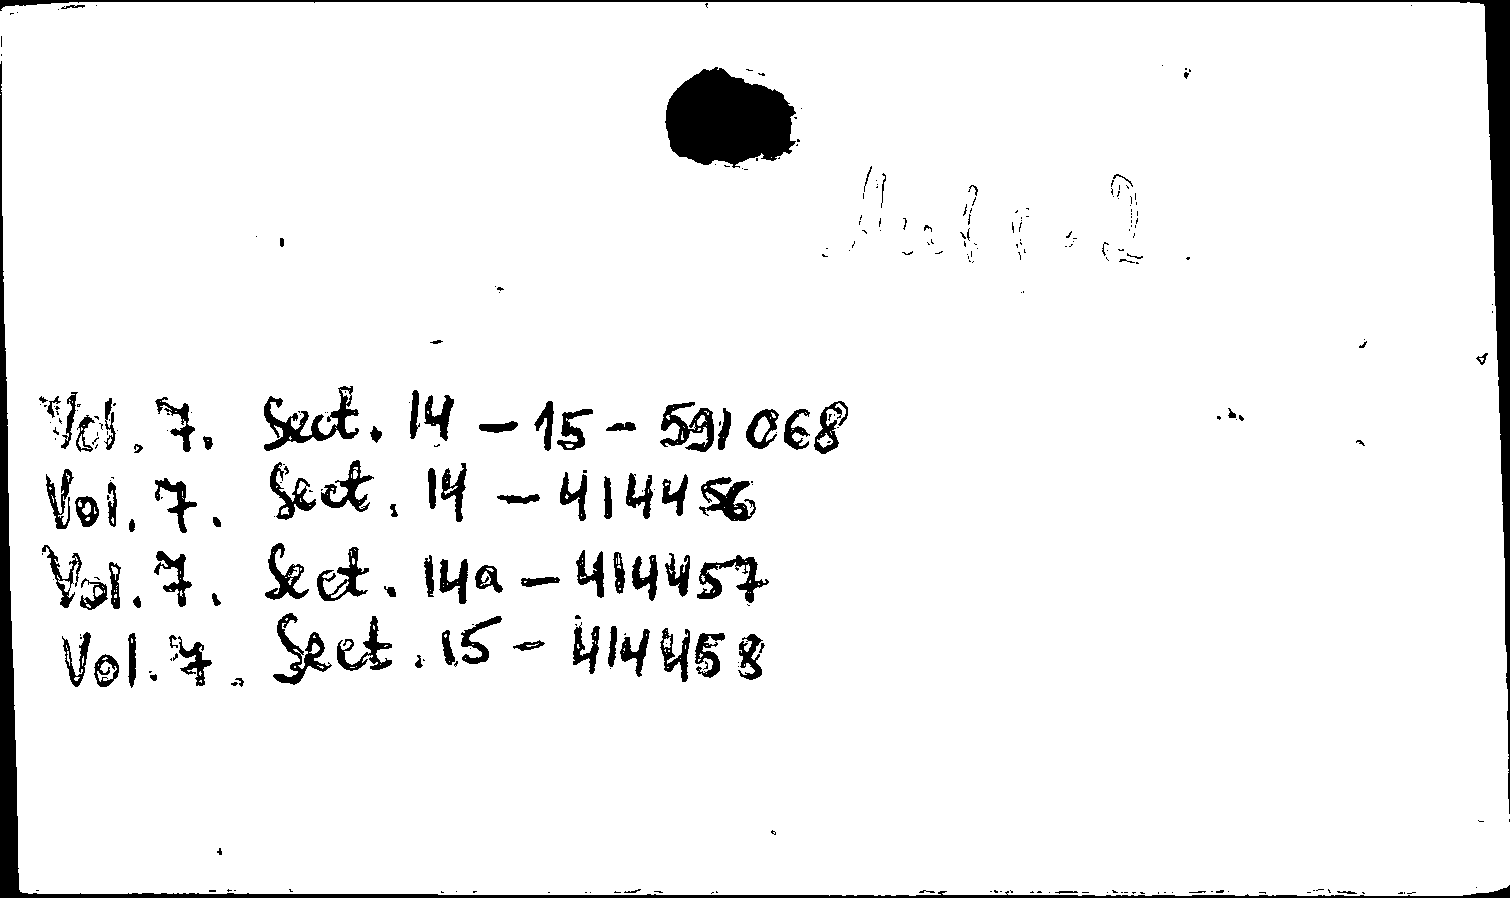 Vol. 7. Sect. 14 – 15 – 591068
Vol. 7. Sect. 14 – 414456
Vol. 7. Sect. 14a – 414457
Vol. 7. Sect. 15 – 414458